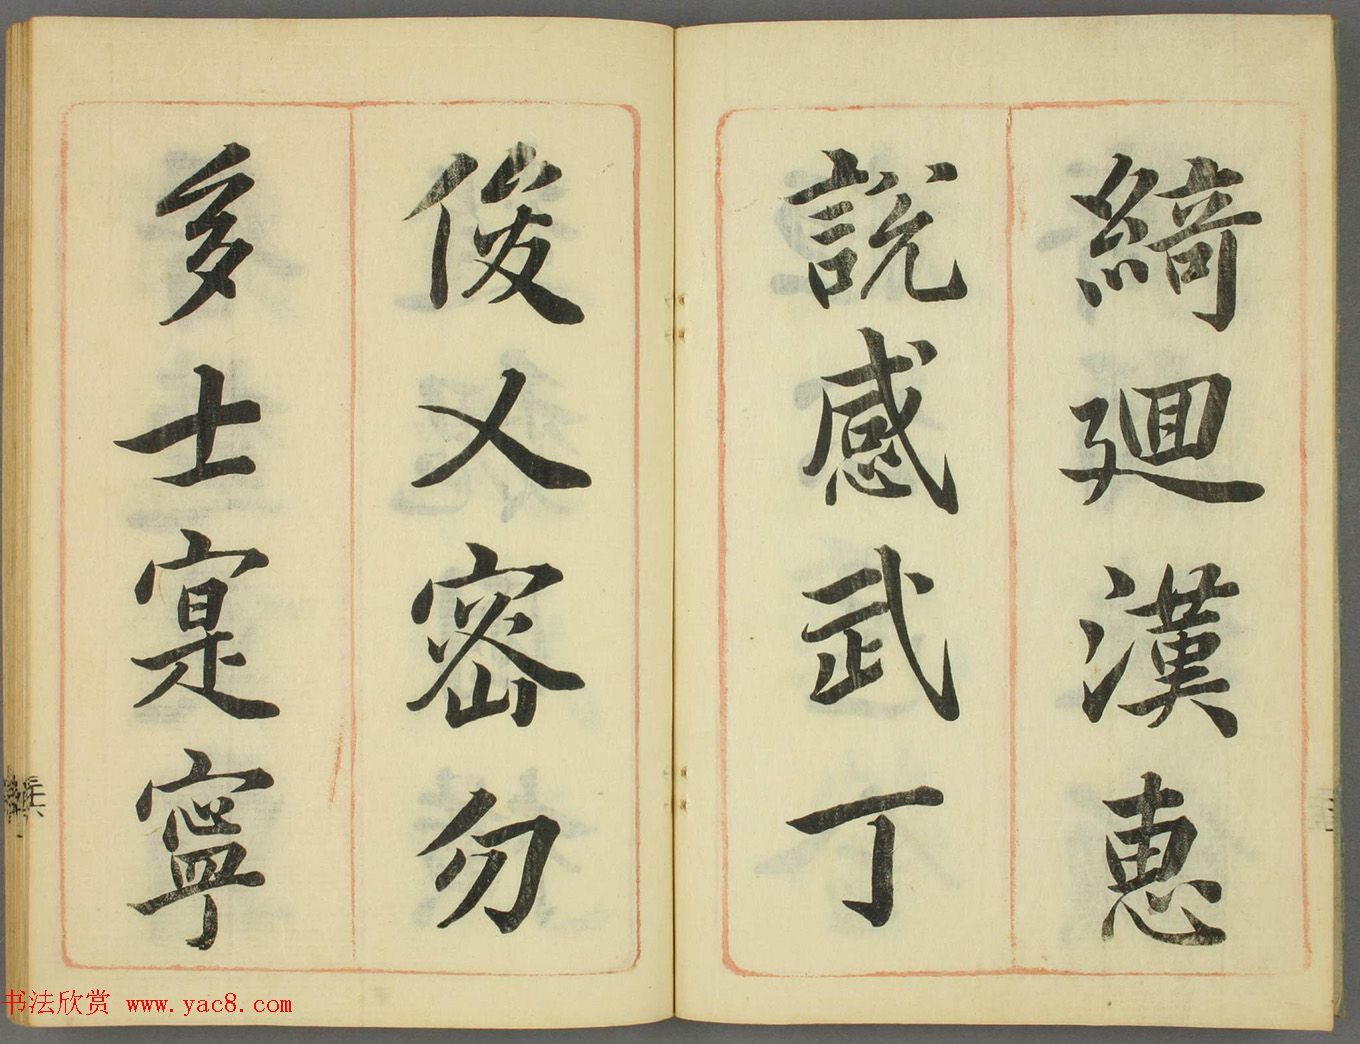 綺廻漢惠
說感武丁
俊乂密勿
多士寔寧
书法欣赏 www.yac8.com